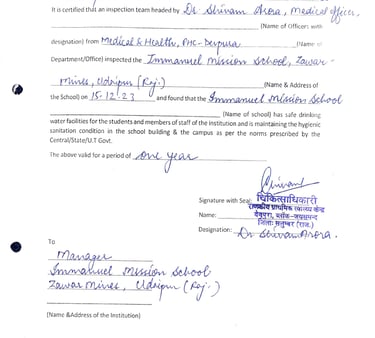 It is certified that an inspection team headed by Dr Shivam Arora, Medical officer,
(Name of Officers with
designation) from Medical & Health, PHC- Devpura (Name of
Department/Office) inspected the Immanuel Mission School, Zawar -
Mines, Udaipur (Raj.) (Name & Address of
the School) on 15-12-23 and found that Immanuel Mission School
(Name of school) has safe drinking
water facilities for the students and members of staff of the institution and is maintaining the hygienic
sanitation condition in the school building & the campus as per the norms prescribed by the
Central/State/U.T Govt.
The above valid for a period of one year
Signature with Seal: चिकित्साधिकारी
राजकीय प्राथमिक स्वास्थ्य केन्द्र
Name: देवपुरा, ब्लॉक-जयसमन्द
जिला: सलुम्बर (राज.)
Designation: Dr Shivam Arora.
To
Manager
Immanuel Mission School
Zawar Mines, Udaipur (Raj.)
(Name &Address of the Institution)